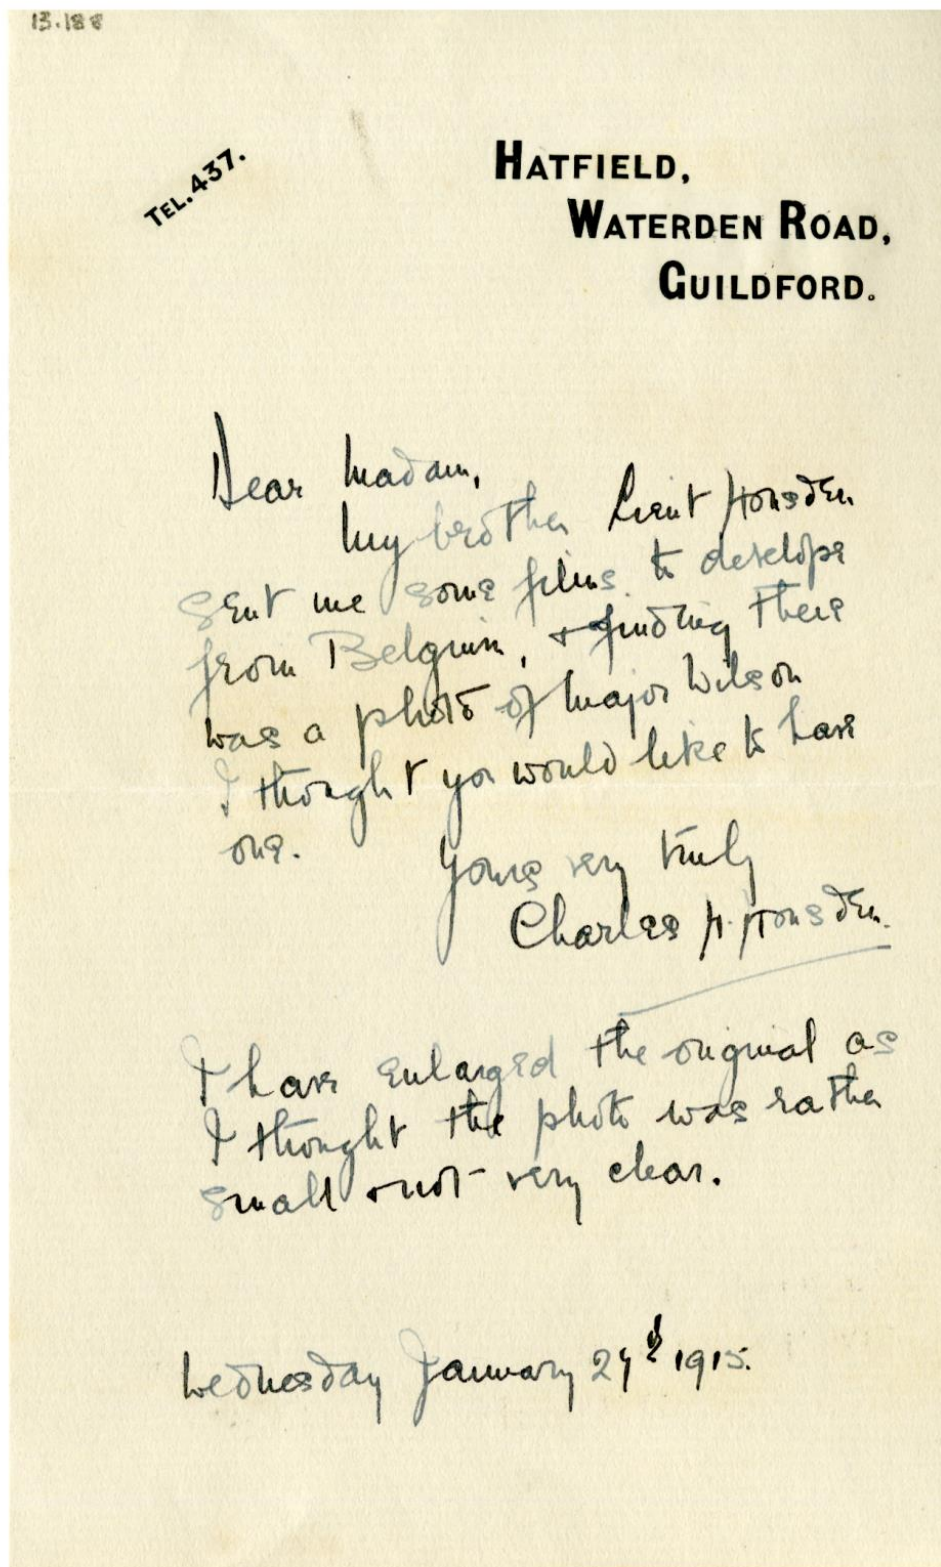 13.188
TEL. 437.
HATFIELD,
WATERDEN ROAD,
GUILDFORD.
Dear Madam,
My brother Lieut Housden
sent me some films to develope
from Belgium, & finding there
was a photo of Major Wilson
I thought you would like to have
one.
Yours very truly
Charles H. Housden.
I have enlarged the original as
I thought the photo was rather
small & not very clear.
Wednesday January 27th 1915.